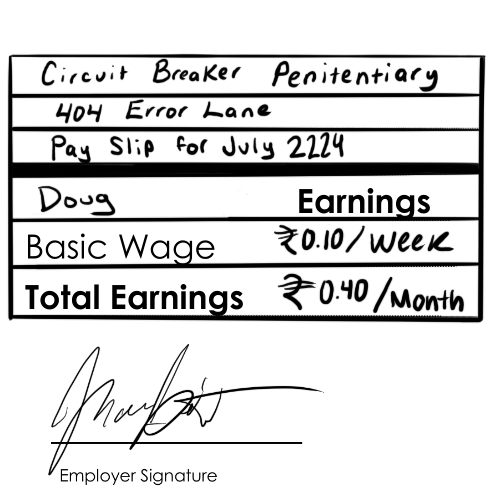 Circuit Breaker Penitentiary
404 Error Lane
Pay Slip for July 2224
Doug Earnings
Basic Wage ₹0.10/Week
Total Earnings ₹0.40/Month
Employer Signature